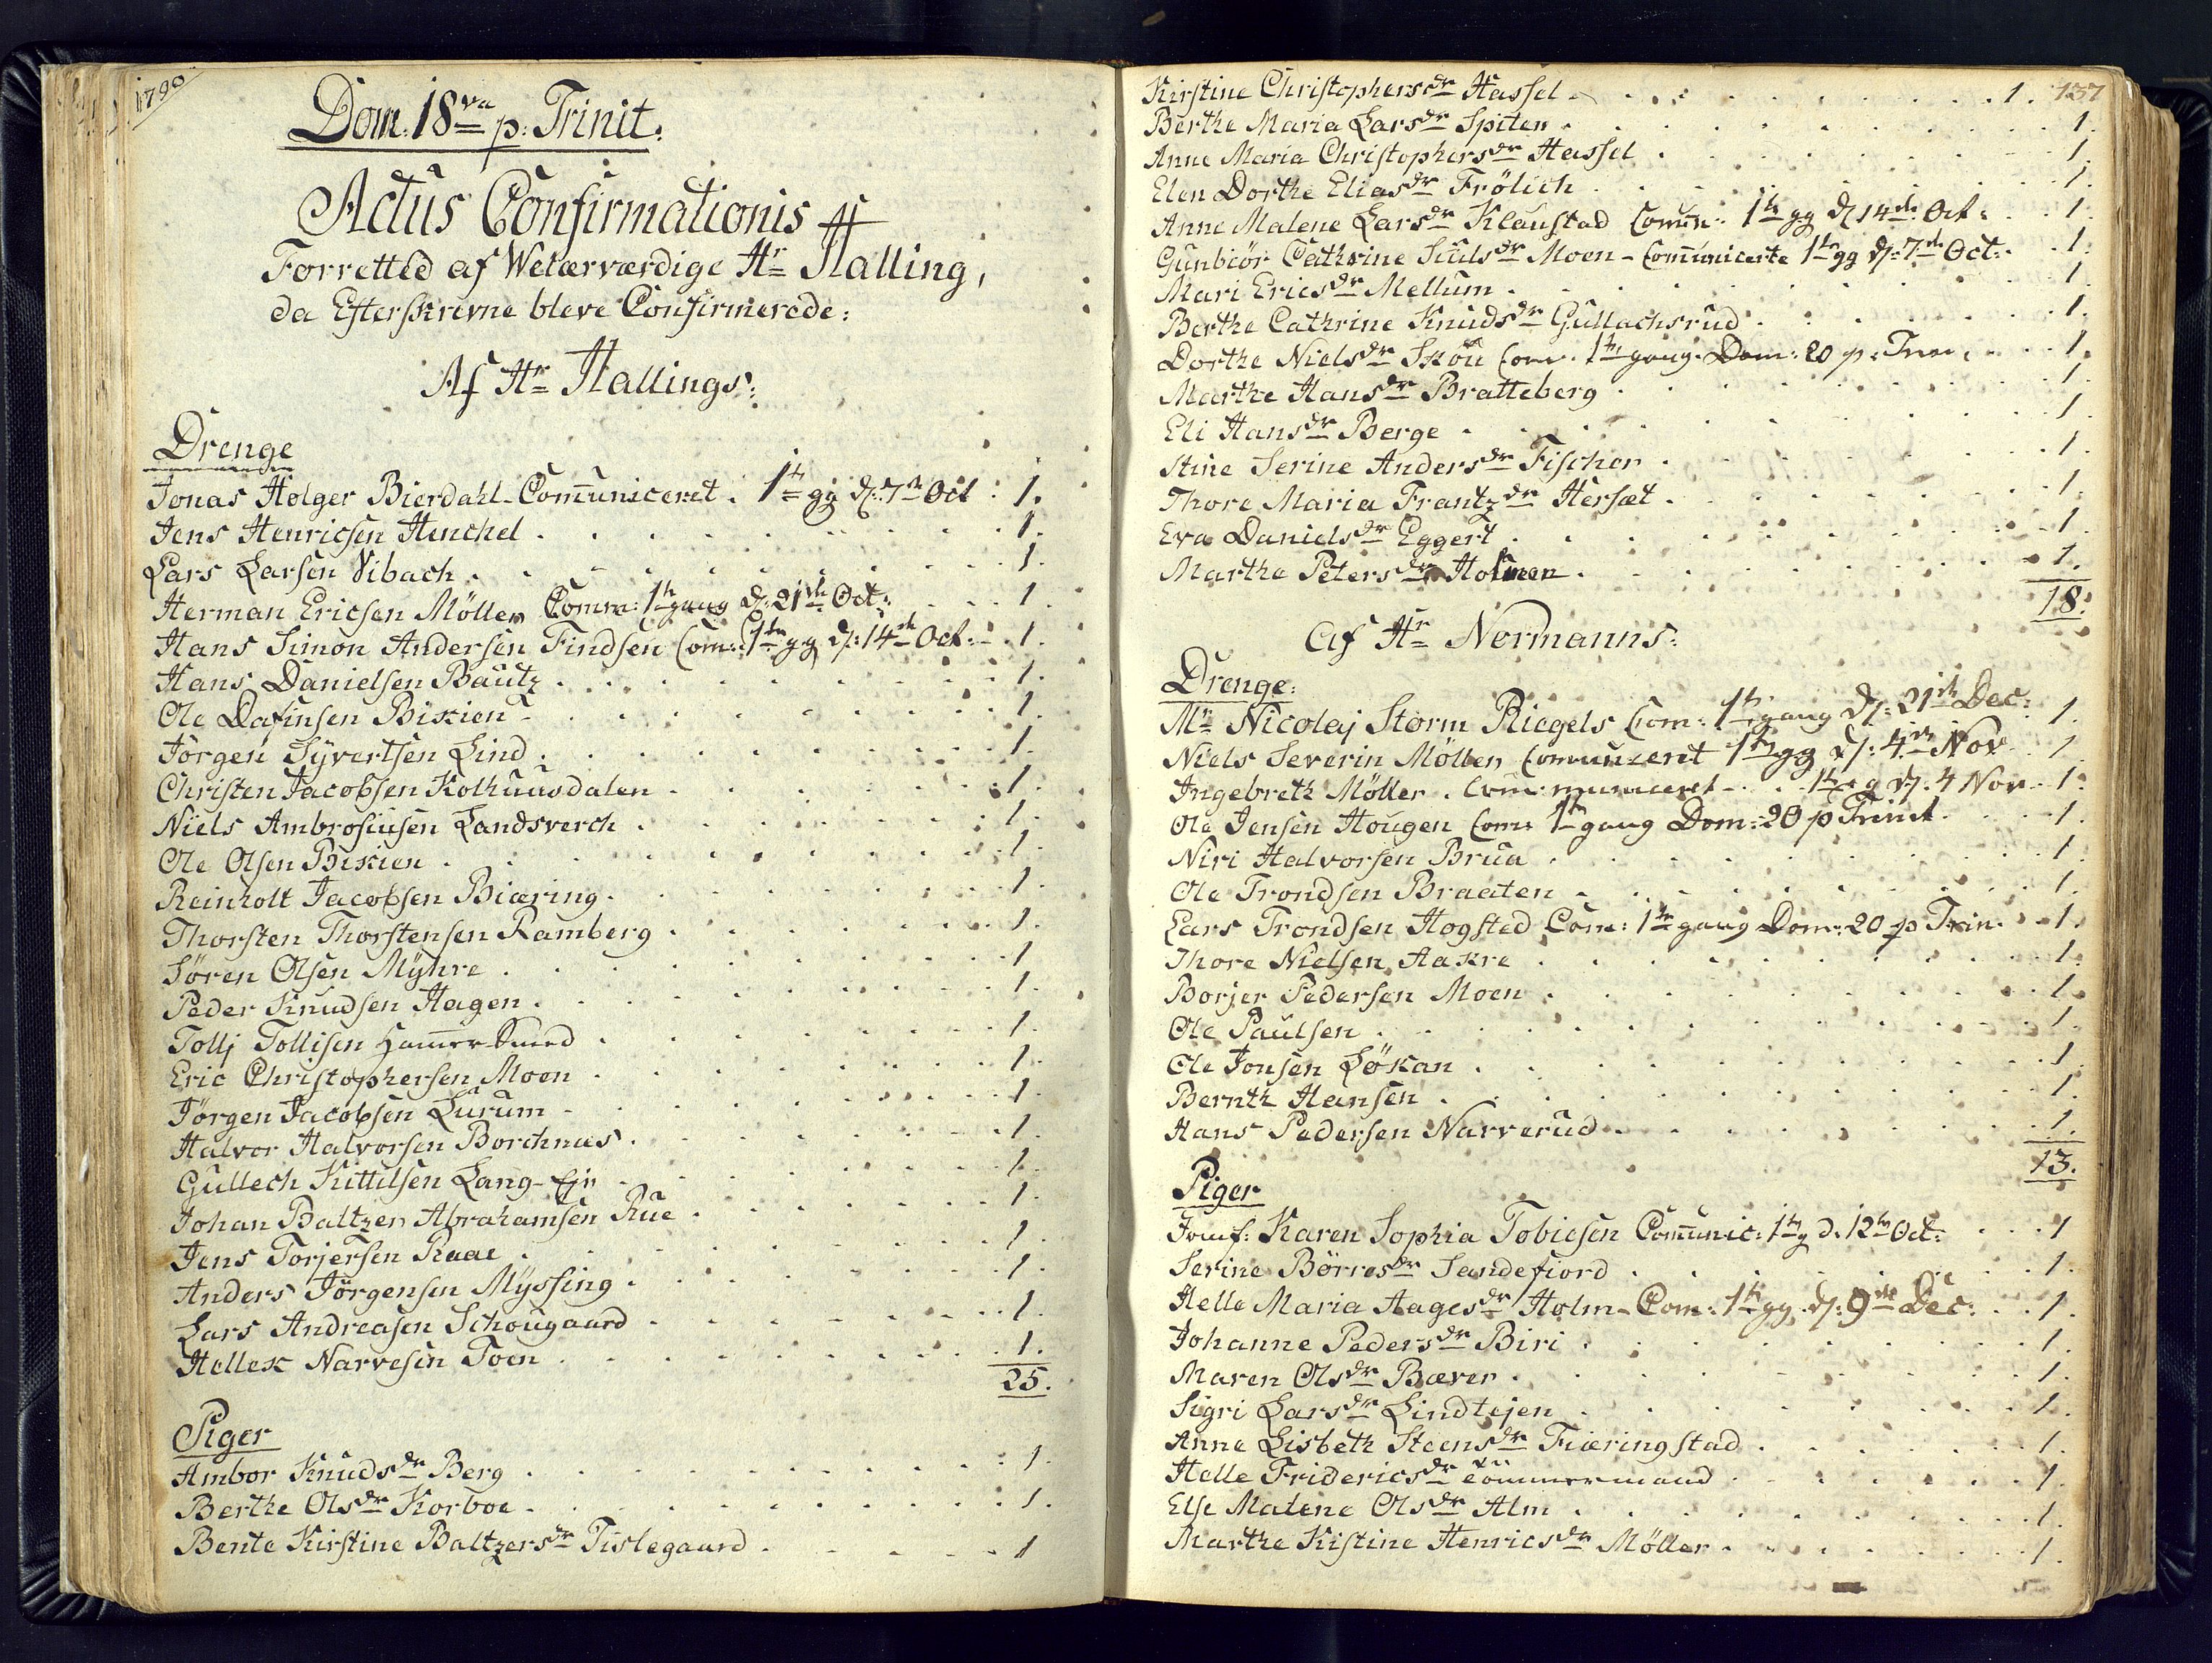 1790
Dom: 18va p: Trinit:
Actus Confirmationis
Forretted af Welærværdige Hr Halling,
da Efterskrevne bleve Confirmerede:
Af Hr Hallings:
Drenge
Jonas Holger Bierdahl - Com̄uniceret. 1te gg d: 7de Oct : 1.
Jens Henricsen Henchel . 1.
Lars Larsen Vibach . 1.
Herman Ericsen Möller Comm: 1te gang d: 21de Oct: 1.
Hans Simon Andersen Findsen Com: 1te gg d: 14de Oct: 1.
Hans Danielsen Bautz . 1.
Ole Dafinsen Biskien . 1.
Jörgen Syvertsen Lind . 1.
Christen Jacobsen Kolhuusdalen . 1.
Niels Ambrosiusen Landsverch . 1.
Ole Olsen Biskien . 1.
Reinholt Jacobsen Biæring . 1.
Thorsten Thorstensen Ramberg . 1.
Sören Olsen Myhre . 1.
Peder Knudsen Hagen . 1.
Tollj Tollisen Ham̄er Smed . 1.
Eric Christophersen Moen . 1.
Jörgen Jacobsen Lurum . 1.
Halvor Halvorsen Borchnæs . 1.
Gullech Kittilsen Lang-Eje . 1.
Johan Baltzer Abrahamsen Rue . 1.
Jens Torjersen Raae . 1.
Anders Jörgensen Myssing . 1.
Lars Andreasen Schougaard . 1.
Hellek Narvesen Toen . 1.
25.
Piger
Ambor Knudsdr Berg . 1.
Berthe Olsdr Korboe . 1.
Bente Kirstine Baltzersdr Tislegaard . 1
137
Kirstine Christophersdr Hassel . 1.
Berthe Maria Larsdr Spiten . 1.
Anne Maria Christophersdr Hassel . 1.
Elen Dorthe Eliasdr Frölich . 1.
Anne Malene Larsdr Klaustad Comm: 1te gg d 14de Oct: 1.
Gunbiör Cathrine Juulsdr Moen - Com̄unicerte 1te gg d: 7de Oct: 1.
Mari Ericsdr Mellum . 1.
Berthe Cathrine Knudsdr Gullachsrud . 1.
Dorthe Nielsdr Skou Com. 1te gang Dom: 20 p: Trin: 1.
Marthe Hansdr Bratteberg . 1.
Eli Hansdr Berge . 1.
Stine Serine Andersdr Fischer . 1.
Thore Maria Frantzdr Hersæt . 1.
Eva Danielsdr Eggert . 1.
Marthe Petersdr Holmen . 1.
18.
Af Hr Normanns:
Drenge:
Mr Nicolaj Storm Riegels Com: 1te gang d: 21de Dec: 1.
Niels Severin Möller Communicent 1te gg d: 4de Nov 1.
Ingebreth Möller . Communiceret . 1te g d: 4 Nov 1.
Ole Jensen Hougen Com: 1te gang Dom: 20 p Trinit. 1.
Niri Halvorsen Brua . 1.
Ole Trondsen Braaten . 1.
Lars Trondsen Hogsted Com: 1te gang Dom: 20 p Trin. 1.
Thore Nielsen Aakre . 1.
Borjer Pedersen Moen . 1.
Ole Paulsen . 1.
Ole Jonsen Lökan . 1.
Bernth Hansen . 1.
Hans Pedersen Narverud . 1.
13.
Piger
Jomf: Karen Sophia Tobiesen Com̄unic: 1te g d. 12te Oct: 1
Serine Börresdr Sandefiord . 1.
Helle Maria Aagesdr Holm - Com: 1te gg. d: 9de Dec: 1.
Johanne Pedersdr Biri . 1.
Maren Olsdr Bæver . 1.
Sigri Larsdr Lindtejen . 1.
Anne Lisbeth Steensdr Fiæringstad . 1.
Helle Fridericsdr Tömmermand . 1.
Else Malene Olsdr Alm . 1.
Marthe Kistine Henricsdr Möller . 1.